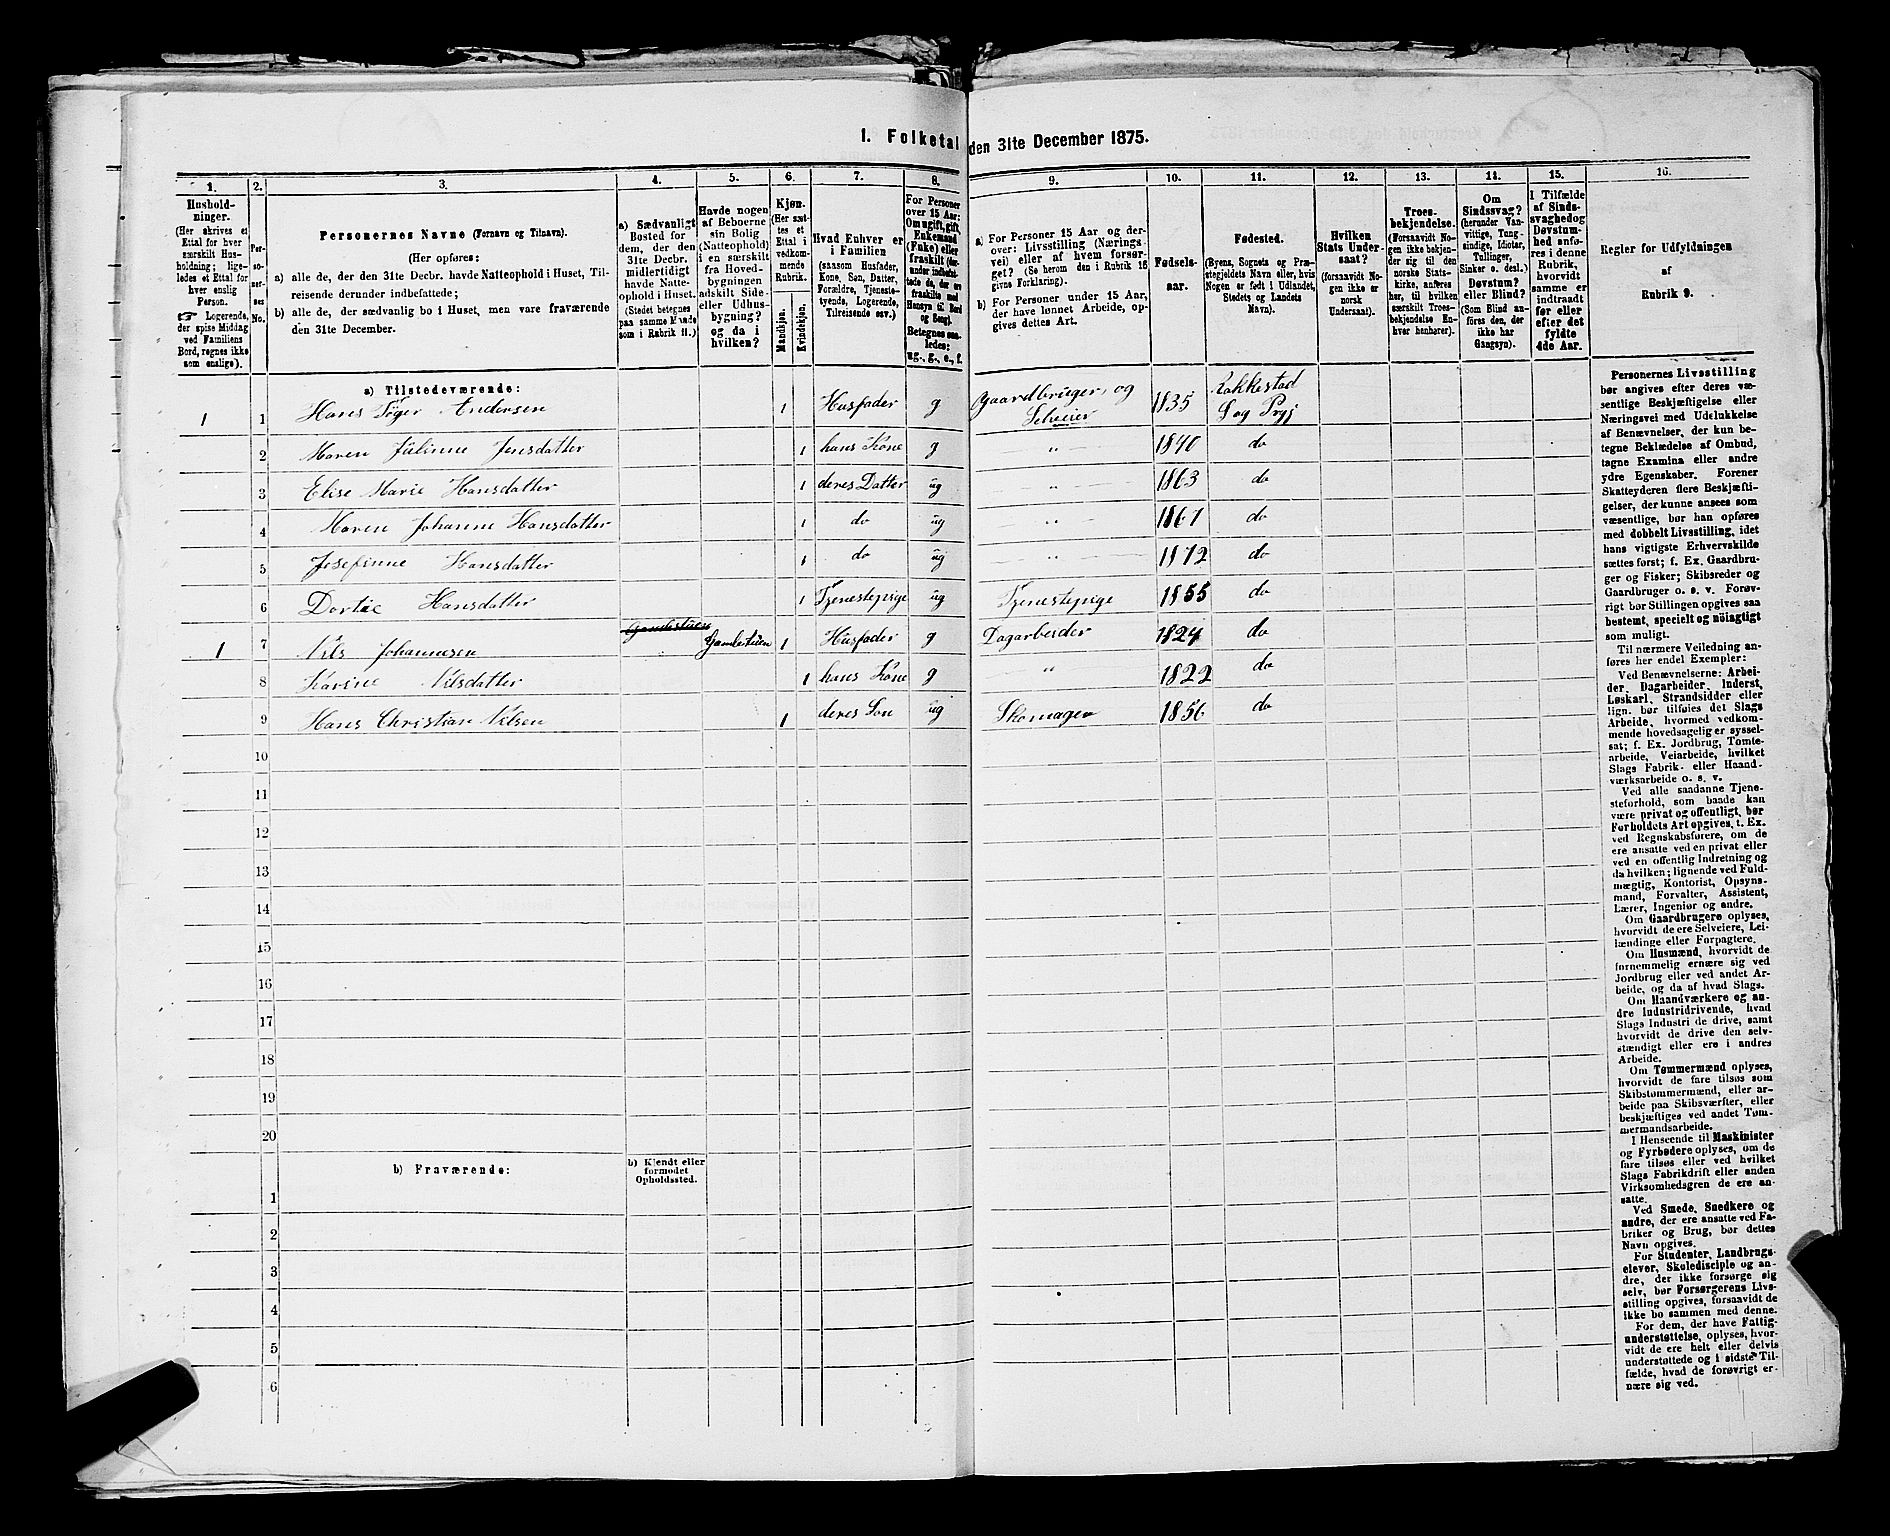 1. Folketal den 31te December 1875.
1.
2.
3.
4.
5.
6.
7.
8.
9.
10.
11.
12.
13.
14.
15.
16.
Husholdninger.
(Her skrives et
Ettal for hver
særskilt Husholdning;
ligeledes et Ettal for
hver enslig
Person.
☞ Logerende,
der spise Middag
ved Familiens
Bord, regnes ikke
som enslige).
Personernes No.
Personernes Navne (Fornavn og Tilnavn).
(Her opføres:
a) alle de, der den 31te Decbr. havde Natteophold i Huset, Tilreisende derunder indbefattede;
b) alle de, der sædvanlig bo i Huset, men vare fraværende
den 31te December.
a) Sædvanligt
Bosted for
dem, der den
31te Decbr.
midlertidigt
havde Natteophold i Huset.
(Stedet betegnes
paa samme Maade
som i Rubrik 11.)
Havde nogen
af Beboerne
sin Bolig
(Natteophold)
i en særskilt
fra Hovedbygningen
adskilt Side-
eller Udhusbygning?
og da i
hvilken?
Kjøn.
(Her sættes et
Ettal i
vedkommende
Rubrik.
Mandkjøn.
Kvindekjøn.
Hvad Enhver er
i Familien
(saasom Husfader,
Kone, Søn, Datter,
Forældre, Tjenestetyende, Logerende,
Tilreisende osv.)
For Personer
over 15 Aar:
Om ugift, gift,
Enkemand
(Enke) eller
fraskilt
Betegnes saaledes:
ug., g., e., f.
a) For Personer 15 Aar og derover: Livsstilling (Næringsvei) eller af hvem forsørget? (Se herom den i Rubrik 16
givne Forklaring).
b) For Personer under 15 Aar,
der have lønnet Arbeide, opgives dettes Art.
Fødselsaar.
Fødested.
(Byens, Sognets og Præstegjeldets Navn eller, hvis
Nogen er født i Udlandet,
Stedets og Landets
Navn).
Hvilken
Stats Undersaat?
(forsaavidt Nogen ikke er
norsk
Undersaat).
Troesbekjendelse.
(Forsaavidt Nogen ikke bekjender sig til den
norske Statskirke, anføres
her, til hvilken
særskilt Troesbekjendelse Enhver henhører).
Om
Sindssvag?
(herunder Vanvittige, Tungsindige, Idioter,
Tullinger,
Sinker o. desl.)
Døvstum?
eller Blind?
(Som Blind anføres den, der
ikke har
Gangsyn).
I Tilfælde
af Sindssvaghed og
Døvstumhed anføres i denne
Rubrik,
hvorvidt
samme er
indtraadt
før eller
efter det
fyldte
4de Aar.
Regler for Udfyldningen
af
Rubrik 9.
a) Tilstedeværende:
1 1 Hans Andersen 1 Husfader g Gaardbruger og Selveier 1835 Rakkestad S og Prgj
2 Maren Juline Jensdatter 1 hans Kone g „ 1840 do
3 Elise Marie Hansdatter 1 deres Datter ug „ 1863 do
4 Maren Johanne Hansdatter 1 do ug „ 1867 do
5 Josefinne Hansdatter 1 do ug „ 1872 do
6 Dortie Hansdatter 1 Tjenestepige ug Tjenestepige 1855 do
1 7 Nils Johannesen 1 Husfader g Dagarbeider 1824 do
8 Karine Nilsdatter 1 hans Kone g „ 1822 do
9 Hans Christian Nilsen 1 deres Søn ug Skomager 1856 do
10
11
12
13
14
15
16
17
18
19
20
b) Fraværende:
b) Kjendt eller
formodet
Opholdssted.
1
2
3
4
5
6
Personernes Livsstilling
bør angives efter deres væsentlige Beskjæftigelse eller
Næringsvei med Udelukkelse
af Benævnelser, der kun betegne Beklædelse af Ombud,
tagne Examina eller andre
ydre Egenskaber. Forener
Skatteyderen flere Beskjæftigelser, der kunne ansees som
væsentlige, bør han opføres
med dobbelt Livsstilling, idet
hans vigtigste Erhvervskilde
sættes først; f. Ex. Gaardbruger og Fisker; Skibsreder og
Gaardbruger o. s. v. Forøvrigt bør Stillingen opgives saa
bestemt, specielt og nöiagtigt
som muligt.
Til nærmere Veiledning anføres her endel Exempler:
Ved Benævnelserne: Arbeider, Dagarbeider, Inderst,
Løskarl, Strandsidder eller
lign. bør tilføies det Slags
Arbeide, hvormed vedkommende hovedsagelig er sysselsat; f. Ex. Jordbrug, Tomtearbeide, Veiarbeide, hvilket
Slags Fabrik- eller Haandværksarbeide o. s. v.
Ved alle saadanne Tjenesteforhold, som baade kan
være privat og offentligt, bør
Forholdets Art opgives, t. Ex.
ved Regnskabsførere, om de
ere ansatte ved en privat eller
ved en offentlig Indretning og
da hvilken; lignende ved Fuldmægtig, Kontorist, Opsynsmand, Forvalter, Assistent,
Lærer, Ingeniør og andre.
Om Gaardbrugere oplyses,
hvorvidt de ere Selveiere, Leilændinge eller Forpagtere.
Om Husmænd, hvorvidt de
fornemmelig ernære sig ved
Jordbrug eller ved andet Arbeide, og da af hvad Slags.
Om Haandværkere og andre Industridrivende, hvad
Slags Industri de drive, samt
hvorvidt de drive den selvstændigt eller ere i andres
Arbeide.
Om Tømmermænd oplyses,
hvorvidt de fare tilsøs som
Skibstømmermænd, eller arbeide paa Skibsværfter, eller
beskjæftiges ved andet Tømmermandsarbeide.
I Henseende til Maskinister
og Fyrbødere oplyses, om de
fare tilsøs eller ved hvilket
Slags Fabrikdrift eller anden
Virksomhedsgren de ere ansatte.
Ved Smede, Snedkere og
andre, der ere ansatte ved Fabriker og Brug, bør dettes
Navn opgives.
For Studenter, Landbrugselever, Skoledisciple og andre, der ikke forsørge sig
selv, bør Forsørgerens Livsstilling opgives, forsaavidt de
ikke bo sammen med denne.
For dem, der have Fattigunderstøttelse, oplyses, hvorvidt de ere helt eller delvis
understøttede og i sidste Tilfælde, hvad de forøvrigt ernære sig ved.